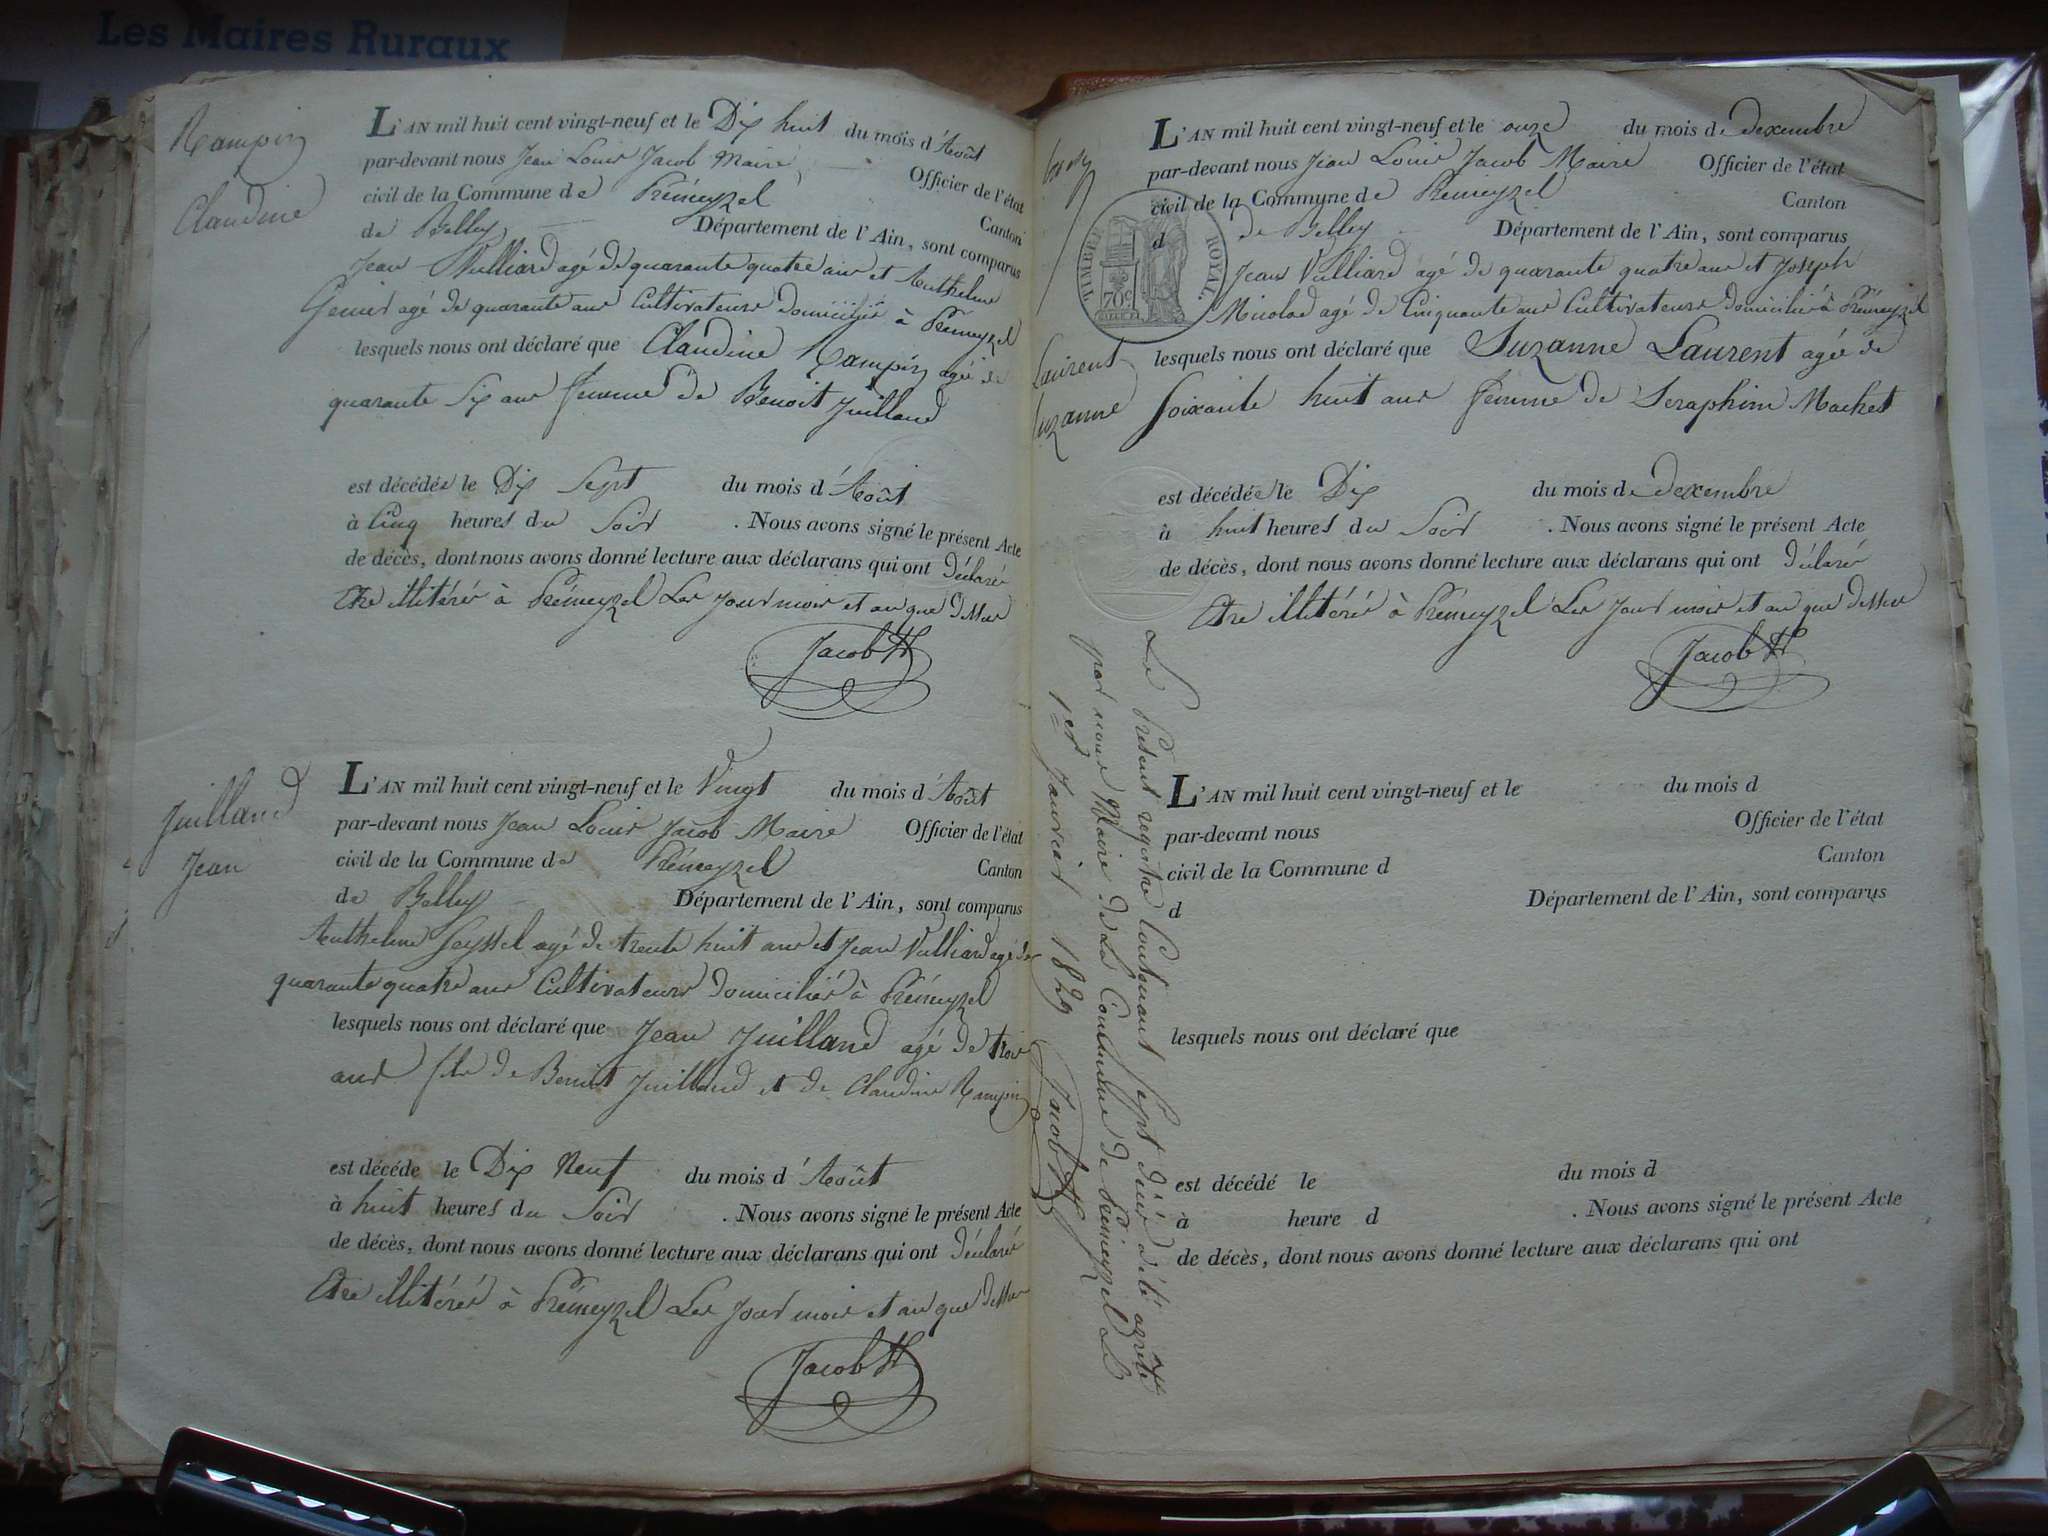 Les Maires Ruraux
Rampin
Claudine
L'AN mil huit cent vingt-neuf et le Dix huit du mois d'Août
par-devant nous Jean Louis Jacob Maire Officier de l'état
civil de la Commune de Prémeyzel Canton
de Belley Département de l'Ain, sont comparus
Jean Vulliard agé de quarante quatre ans et Anthelme
Genier agé de quarante ans Cultivateurs domiciliés à Prémeyzel
lesquels nous ont déclaré que Claudine Rampin agée de
quarante Six ans femme de Benoit Juilland
est décédée le Dix Sept du mois d'Août
à Cinq heures du Soir . Nous avons signé le présent Acte
de décès, dont nous avons donné lecture aux déclarans qui ont déclaré
Etre illitérés à Prémeyzel Les jour mois et an que dessus
Jacob
Juilland
Jean
L'AN mil huit cent vingt-neuf et le Vingt du mois d'Août
par-devant nous Jean Louis Jacob Maire Officier de l'état
civil de la Commune de Prémeyzel Canton
de Belley Département de l'Ain, sont comparus
Anthelme Seyssel agé de trente huit ans et Jean Vulliard agé de
quarante quatre ans Cultivateurs domiciliés à Prémeyzel
lesquels nous ont déclaré que Jean Juilland agé de trois
ans fils de Benoit Juilland et de Claudine Rampin
est décédé le Dix Neuf du mois d'Août
à huit heures du Soir . Nous avons signé le présent Acte
de décès, dont nous avons donné lecture aux déclarans qui ont déclaré
Etre illitérés à Prémeyzel Les jour mois et an que dessus
Jacob
TIMBRE ROYAL.
70c
Laurent
Suzanne
L'AN mil huit cent vingt-neuf et le onze du mois de dexembre
par-devant nous Jean Louis Jacob Maire Officier de l'état
civil de la Commune de Prémeyzel Canton
d de Belley Département de l'Ain, sont comparus
Jean Vulliard agé de quarante quatre ans et Joseph
Micolad agé de Cinquante ans Cultivateurs domiciliés à Prémeyzel
lesquels nous ont déclaré que Suzanne Laurent agée de
Soixante huit ans femme de Seraphin Machet
est décédée le Dix du mois de dexembre
à huit heures du Soir . Nous avons signé le présent Acte
de décès, dont nous avons donné lecture aux déclarans qui ont déclaré
Etre illitérés à Prémeyzel Les jour mois et an que dessus
Jacob
Le Présent registre Contenant Sept décès a été arrêté
par nous Maire de La Commune de Prémeyzel le
1er Janvier 1829 Jacob
L'AN mil huit cent vingt-neuf et le du mois d
par-devant nous Officier de l'état
civil de la Commune d Canton
d Département de l'Ain, sont comparus
lesquels nous ont déclaré que
est décédé le du mois d
à heure d . Nous avons signé le présent Acte
de décès, dont nous avons donné lecture aux déclarans qui ont